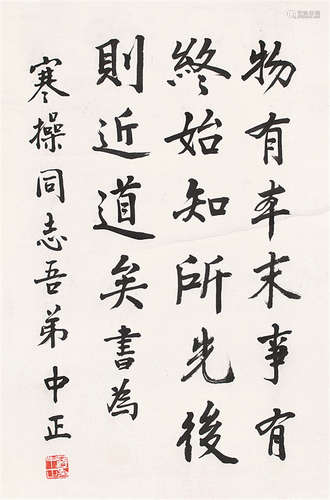 物有本末事有
終始知所先後
則近道矣書為
寒操同志吾弟中正